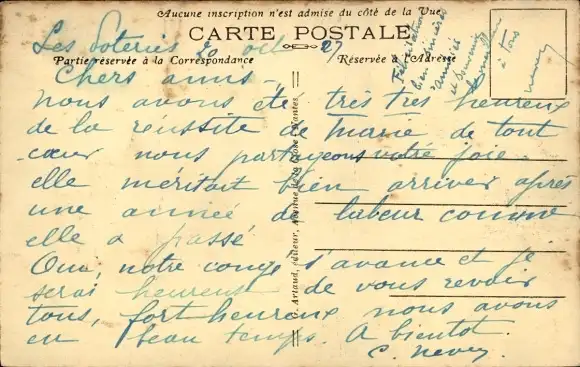 Aucune inscription n'est admise du côté de la Vue
CARTE POSTALE
Les Poteries 20 oct 27
Partie réservée à la Correspondance
Réservée à l'Adresse
Chers amis -
nous avons été très très heureux
de la réussite de Marie de tout
cœur nous partageons votre joie -
elle méritait bien arriver après
une année de labeur comme
elle a passé
Oui, notre congé s'avance et je
serai heureux de vous revoir
tous, fort heureux nous avons
eu beau temps. A bientôt.
C. Nevey.
Félicitations
d'amitiés
et souvenir
à tous
Nevey
Artaud, éditeur, Nantes